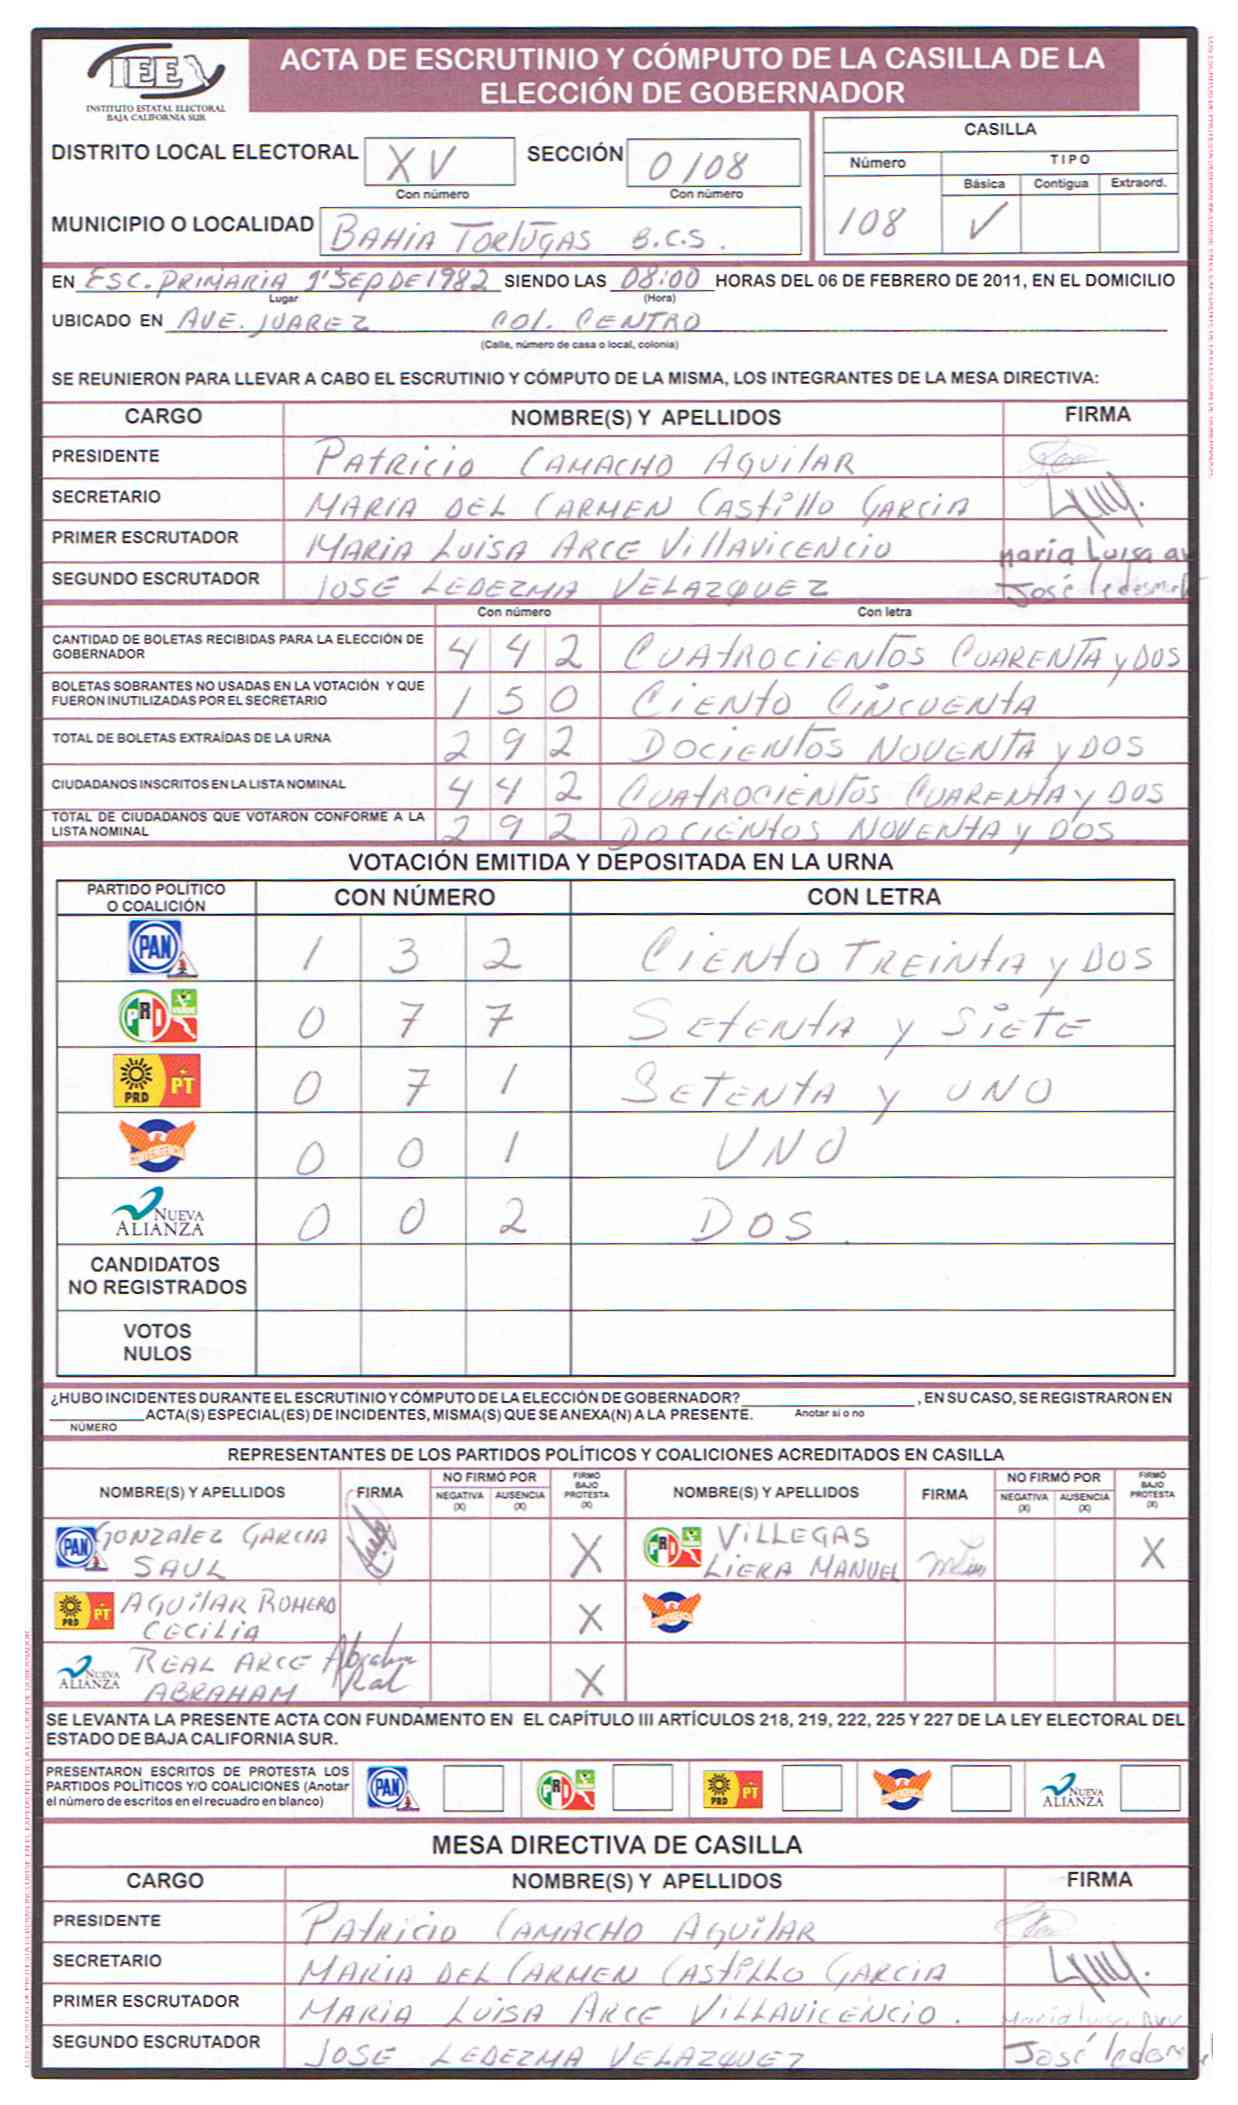 IEE
INSTITUTO ESTATAL ELECTORAL
BAJA CALIFORNIA SUR
ACTA DE ESCRUTINIO Y CÓMPUTO DE LA CASILLA DE LA
ELECCIÓN DE GOBERNADOR
DISTRITO LOCAL ELECTORAL XV SECCIÓN 0108
Con número Con número
CASILLA
Número TIPO
Básica Contigua Extraord.
108 ✓
MUNICIPIO O LOCALIDAD BAHIA TORTUGAS B.C.S.
EN ESC. PRIMARIA 1° SEP DE 1982 SIENDO LAS 08:00 HORAS DEL 06 DE FEBRERO DE 2011, EN EL DOMICILIO
Lugar (Hora)
UBICADO EN AVE. JUAREZ COL. CENTRO
(Calle, número de casa o local, colonia)
SE REUNIERON PARA LLEVAR A CABO EL ESCRUTINIO Y CÓMPUTO DE LA MISMA, LOS INTEGRANTES DE LA MESA DIRECTIVA:
CARGO NOMBRE(S) Y APELLIDOS FIRMA
PRESIDENTE PATRICIO CAMACHO AGUILAR
SECRETARIO MARIA DEL CARMEN CASTILLO GARCIA
PRIMER ESCRUTADOR MARIA LUISA ARCE VILLAVICENCIO maria Luisa
SEGUNDO ESCRUTADOR JOSE LEDEZMA VELAZQUEZ José
Con número Con letra
CANTIDAD DE BOLETAS RECIBIDAS PARA LA ELECCIÓN DE
GOBERNADOR 4 4 2 CUATROCIENTOS CUARENTA Y DOS
BOLETAS SOBRANTES NO USADAS EN LA VOTACIÓN Y QUE
FUERON INUTILIZADAS POR EL SECRETARIO 1 5 0 CIENTO CINCUENTA
TOTAL DE BOLETAS EXTRAÍDAS DE LA URNA 2 9 2 DOCIENTOS NOVENTA Y DOS
CIUDADANOS INSCRITOS EN LA LISTA NOMINAL 4 4 2 CUATROCIENTOS CUARENTA Y DOS
TOTAL DE CIUDADANOS QUE VOTARON CONFORME A LA
LISTA NOMINAL 2 9 2 DOCIENTOS NOVENTA Y DOS
VOTACIÓN EMITIDA Y DEPOSITADA EN LA URNA
PARTIDO POLÍTICO
O COALICIÓN CON NÚMERO CON LETRA
PAN 1 3 2 CIENTO TREINTA Y DOS
PRI VERDE 0 7 7 SETENTA Y SIETE
PRD PT 0 7 1 SETENTA Y UNO
CONVERGENCIA 0 0 1 UNO
NUEVA ALIANZA 0 0 2 DOS.
CANDIDATOS
NO REGISTRADOS
VOTOS
NULOS
¿HUBO INCIDENTES DURANTE EL ESCRUTINIO Y CÓMPUTO DE LA ELECCIÓN DE GOBERNADOR? , EN SU CASO, SE REGISTRARON EN
ACTA(S) ESPECIAL(ES) DE INCIDENTES, MISMA(S) QUE SE ANEXA(N) A LA PRESENTE. Anotar si o no
NÚMERO
REPRESENTANTES DE LOS PARTIDOS POLÍTICOS Y COALICIONES ACREDITADOS EN CASILLA
NOMBRE(S) Y APELLIDOS FIRMA NO FIRMÓ POR NEGATIVA (X) AUSENCIA (X) FIRMÓ BAJO PROTESTA (X) NOMBRE(S) Y APELLIDOS FIRMA NO FIRMÓ POR NEGATIVA (X) AUSENCIA (X) FIRMÓ BAJO PROTESTA (X)
PAN GONZALEZ GARCIA SAUL X PRI VILLEGAS LIERA MANUEL X
PRD PT AGUILAR ROMERO CECILIA X
NUEVA ALIANZA REAL ARCE ABRAHAM Abraham Real X
SE LEVANTA LA PRESENTE ACTA CON FUNDAMENTO EN EL CAPÍTULO III ARTÍCULOS 218, 219, 222, 225 Y 227 DE LA LEY ELECTORAL DEL
ESTADO DE BAJA CALIFORNIA SUR.
PRESENTARON ESCRITOS DE PROTESTA LOS
PARTIDOS POLÍTICOS Y/O COALICIONES (Anotar
el número de escritos en el recuadro en blanco)
PAN PRI PRD PT NUEVA ALIANZA
MESA DIRECTIVA DE CASILLA
CARGO NOMBRE(S) Y APELLIDOS FIRMA
PRESIDENTE PATRICIO CAMACHO AGUILAR
SECRETARIO MARIA DEL CARMEN CASTILLO GARCIA
PRIMER ESCRUTADOR MARIA LUISA ARCE VILLAVICENCIO.
SEGUNDO ESCRUTADOR JOSE LEDEZMA VELAZQUEZ José